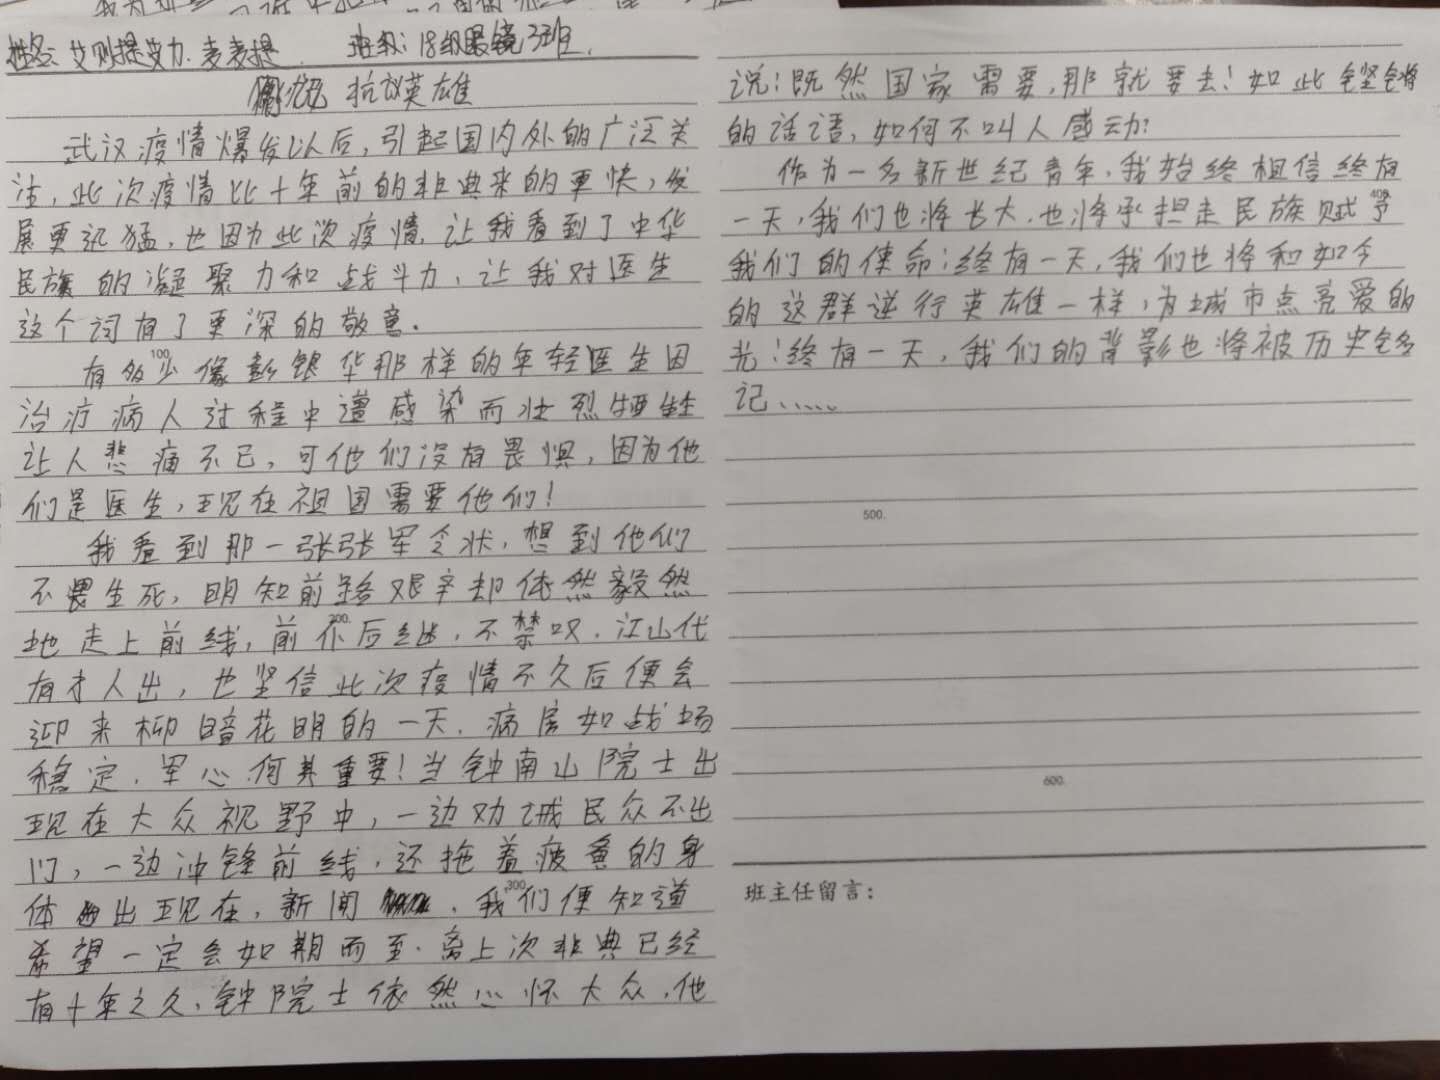 姓名：艾则提艾力.麦麦提 班级：18级眼镜3班.
抗议英雄
武汉疫情爆发以后，引起国内外的广泛关
注，此次疫情比十年前的非典来的更快，发
展更迅猛，也因为此次疫情，让我看到了中华
民族的凝聚力和战斗力，让我对医生
这个词有了更深的敬意.
100
有多少像彭银华那样的年轻医生因
治疗病人过程中遭感染而壮烈牺牲
让人悲痛不已，可他们没有畏惧，因为他
们是医生，现在祖国需要他们！
我看到那一张张军令状，想到他们
不畏生死，明知前路艰辛却依然毅然
200.
地走上前线，前仆后继，不禁叹，江山代
有才人出，也坚信此次疫情不久后便会
迎来柳暗花明的一天.病房如战场
稳定.军心何其重要！当钟南山院士出
现在大众视野中，一边劝诫民众不出
门，一边冲锋前线，还拖着疲惫的身
300
体出现在，新闻，我们便知道
希望一定会如期而至.离上次非典已经
有十年之久，钟院士依然心怀大众，他
说：既然国家需要，那就要去！如此铿锵
的话语，如何不叫人感动？
作为一名新世纪青年，我始终相信终有
400
一天，我们也将长大，也将承担走民族赋予
我们的使命；终有一天，我们也将和如今
的这群逆行英雄一样，为城市点亮爱的
光；终有一天，我们的背影也将被历史铭
记……
500.
600.
班主任留言：